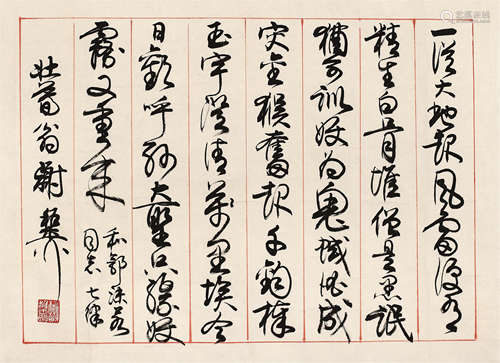 一从大地起风雷便有
精生白骨堆僧是愚氓
犹可训妖为鬼蜮必成
灾金猴奋起千钧棒
玉宇澄清万里埃今
日欢呼孙大圣只缘妖
雾又重来
和郭沫若
同志 七律
壮暮翁谢稚柳